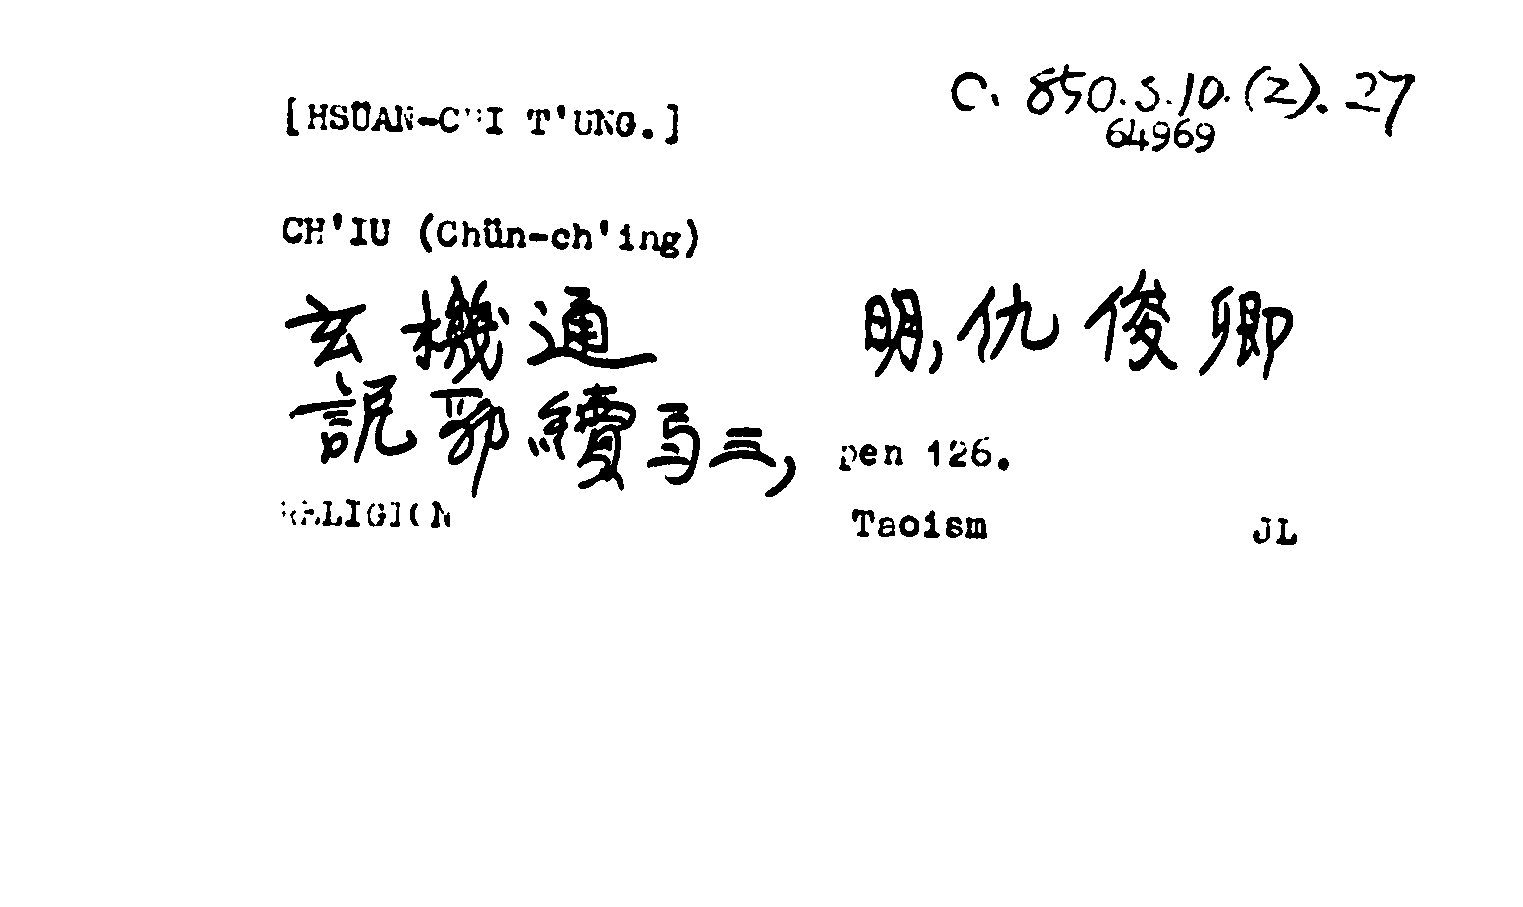 [HSÜAN-CHI T'UNG.]
C. 850.S.10.(2).27
64969
CH'IU (Chün-ch'ing)
玄機通 明,仇俊卿
說郛續弓三, pen 126.
RELIGION Taoism JL